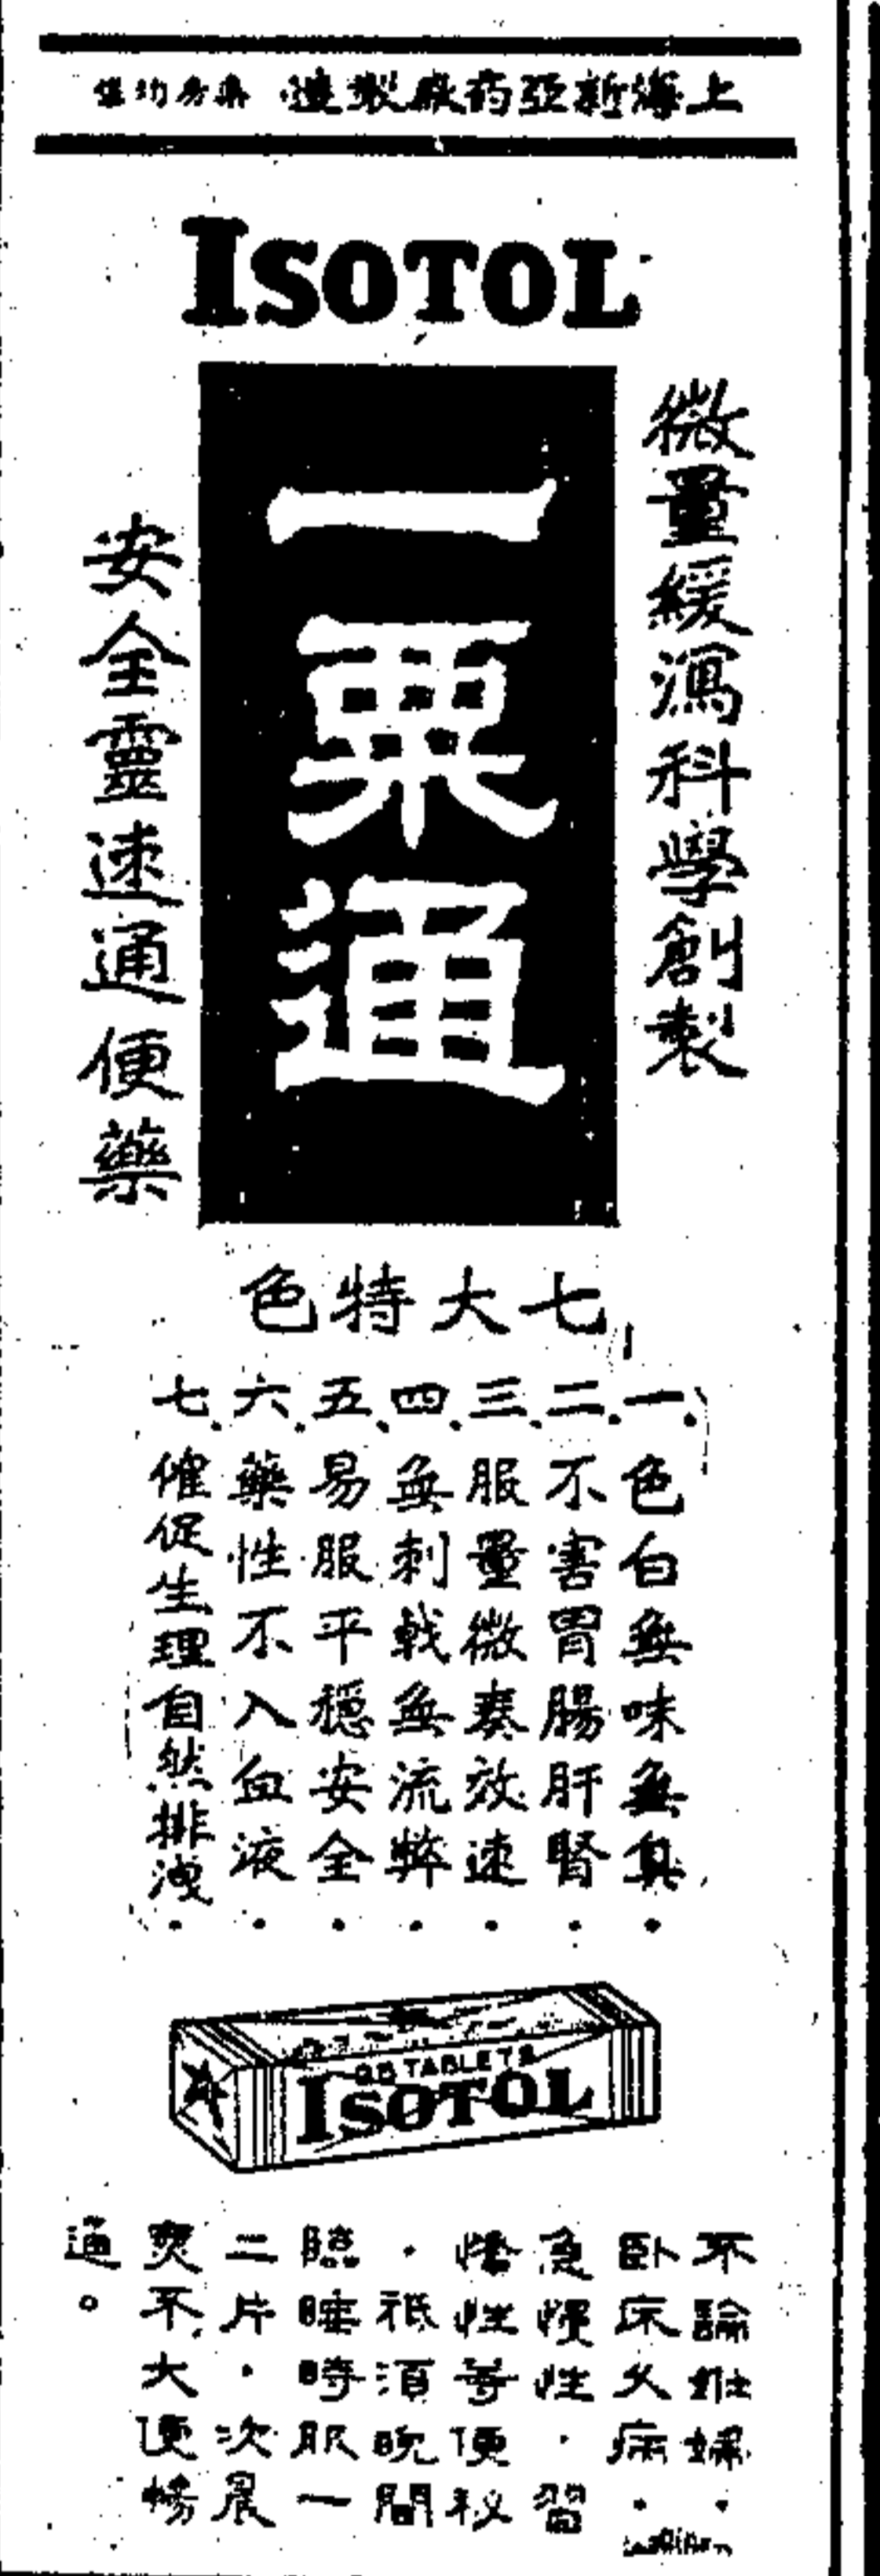 上海新亞药廠製造 藥房均售
ISOTOL
微量緩瀉科學創製
一粟通
安全靈速通便藥
七大特色
一.色白無味無臭.
二.不害胃腸肝腎.
三.服量微奏效速.
四.無刺戟無流弊.
五.易服平穩安全.
六.藥性不入血液.
七.催促生理自然排洩.
TABLETS
ISOTOL
不論姙婦.
卧床久病.
急慢性.習
慣性等便秘
.祗須晚間
臨睡時服一
二片.次晨
爽不大便暢
通。